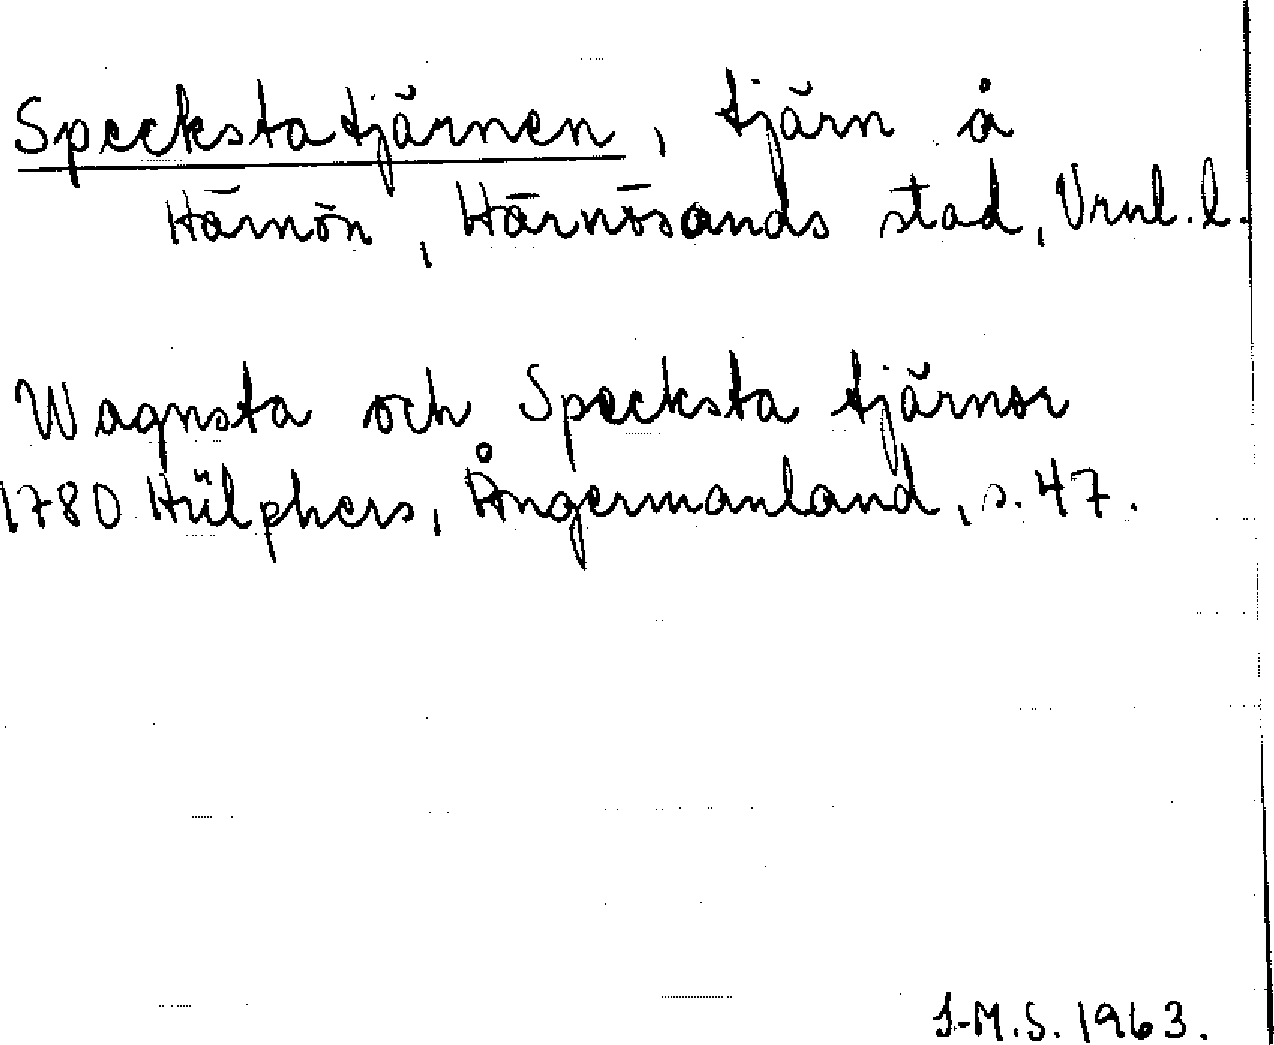 Speckstatjärnen, tjärn å
Härnön, Härnösands stad, Vrnl. l.
Wagnsta och Specksta tjärnor
1780 Hülphers, Ångermanland, s. 47.
I-M.S. 1963.